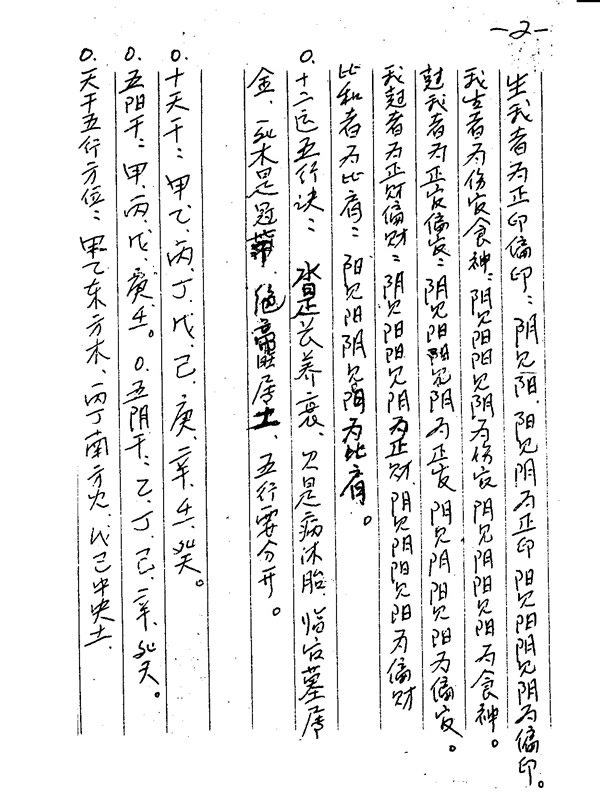 -2-
生我者为正印偏印：阴见阳、阳见阴为正印 阳见阳阴见阴为偏印。
我生者为伤官食神：阴见阳阳见阴为伤官 阴见阴阳见阳为食神。
尅我者为正官偏官：阴见阳阳见阴为正官 阴见阴阳见阳为偏官。
我尅者为正财偏财：阴见阳阳见阴为正财 阴见阴阳见阳为偏财
比和者为比肩：阳见阳阴见阴为比肩。
0.十二运五行诀：水是长养衰、火是病沐胎、临官墓属
金、木是冠带、绝属土、五行要分开。
0.十天干：甲、乙、丙、丁、戊、己、庚、辛、壬、癸。
0.五阳干：甲、丙、戊、庚、壬。0.五阴干：乙、丁、己、辛、癸。
0.天干五行方位：甲乙东方木、丙丁南方火、戊己中央土、